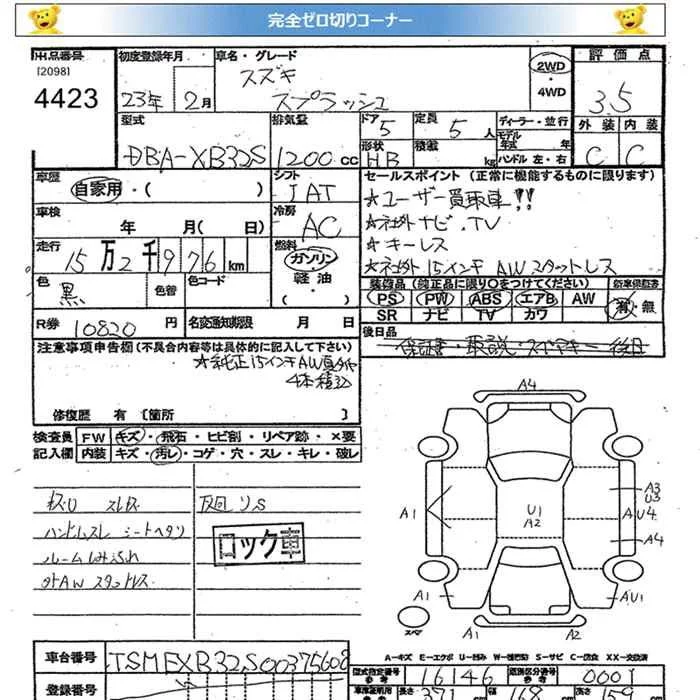 完全ゼロ切りコーナー
出品番号 初度登録年月 車名・グレード 評価点
[2098] スズキ 2WD
4423 23年 2月 スプラッシュ 4WD 3.5
型式 排気量 ドア 5 定員 5人 ディーラー・並行 外装 内装
モデル年式 年
DBA-XB32S 1200cc 形状 HB 積載 kg ハンドル 左・右 C C
車歴 自家用・( ) シフト IAT セールスポイント (正常に機能するものに限ります)
★ユーザー買取車!!
車検 年 月( 日) 冷房 AC ★社外ナビ.TV
★キーレス
走行 15万2千976km 燃料 ガソリン・軽油・( ) ★社外15インチAWスタットレス
色 黒 色替 色コード 装備品(純正品に限り○をつけてください) 新車保証書
PS PW ABS エアB AW 有・無
SR ナビ TV カワ
R券 10820円 名変通知期限 月 日 後日品
保証書・取説・スペアキー 後日
注意事項申告欄(不具合内容等は具体的に記入して下さい)
★純正15インチAW
4本積込
修復歴 有 [箇所 ]
検査員 FW キズ・飛石・ヒビ割・リペア跡・×要
記入欄 内装 キズ・汚レ・コゲ・穴・スレ・キレ・破レ
ハンドルスレ シートヘタリ
ロック車
外AW スタットレス
A4
A3
U3
A1 U1 A2 AU4
A4
A1 AU1
スペア A1 A2
A-キズ E-エクボ U-凹み W-補修跡 S-サビ C-腐食 XX-交換済
車台番号 TSMEXB32S00375608 型式指定番号 参考 16146 類別区分番号 参考 0001
登録番号 長さ 371 幅 168 高さ